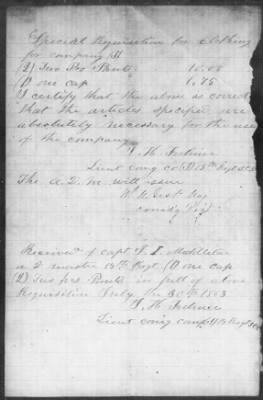 Special Requisition for clothing
for company H
(2) Two Prs Pants 11.00
(1) one cap 1.75
I certify that the above is correct
that the articles specified are
absolutely necessary for the use
of the company
Lieut comg co
The A. Q. M. will issue
comdg
Received of capt J. I. Middleton
a Q master 13th Regt (1) one cap
(2) Two prs Pants in full of above
Requisition July the 30th 1863
Lieut comg comp